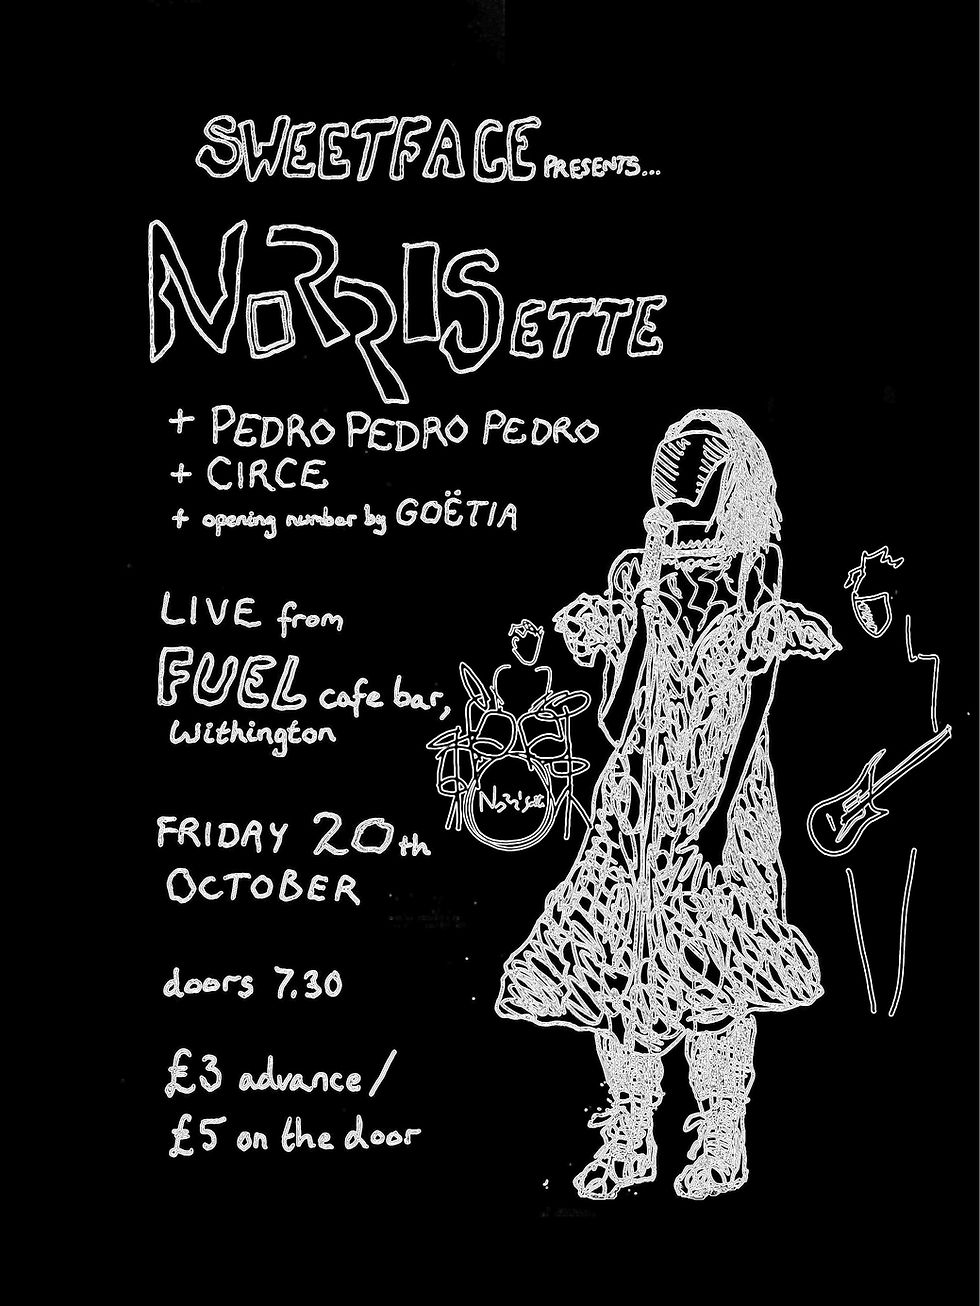 SWEETFACE PRESENTS...
NORRISETTE
+ PEDRO PEDRO PEDRO
+ CIRCE
+ opening number by GOËTIA
LIVE from
FUEL cafe bar,
Withington
Norrisette
FRIDAY 20th
OCTOBER
doors 7.30
£3 advance/
£5 on the door